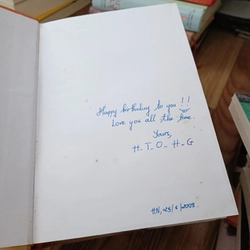 Happy birthday to you !!
Love you all the time.
Yours,
H.T.O.H.G
HN, 23/2/2008